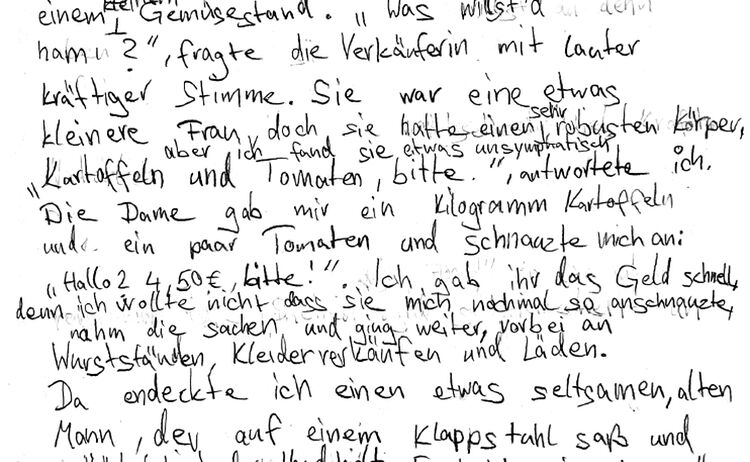 einem kleinen Gemüsestand. „Was willst d denn
hamn?", fragte die Verkäuferin mit lauter
kräftiger Stimme. Sie war eine etwas
kleinere Frau, doch sie hatte einen sehr robusten Körper,
aber ich fand sie etwas unsymphatisch
„Kartoffeln und Tomaten, bitte.", antwortete ich.
Die Dame gab mir ein Kilogramm Kartoffeln
und ein paar Tomaten und schnauzte mich an:
„Hallo 2 4,50€, bitte!". Ich gab ihr das Geld schnell,
denn ich wollte nicht dass sie mich nochmal so anschnauzte,
nahm die sachen und ging weiter, vorbei an
Wurstständen, Kleiderverkäufen und Läden.
Da endeckte ich einen etwas seltsamen, alten
Mann, der auf einem Klappstuhl saß und